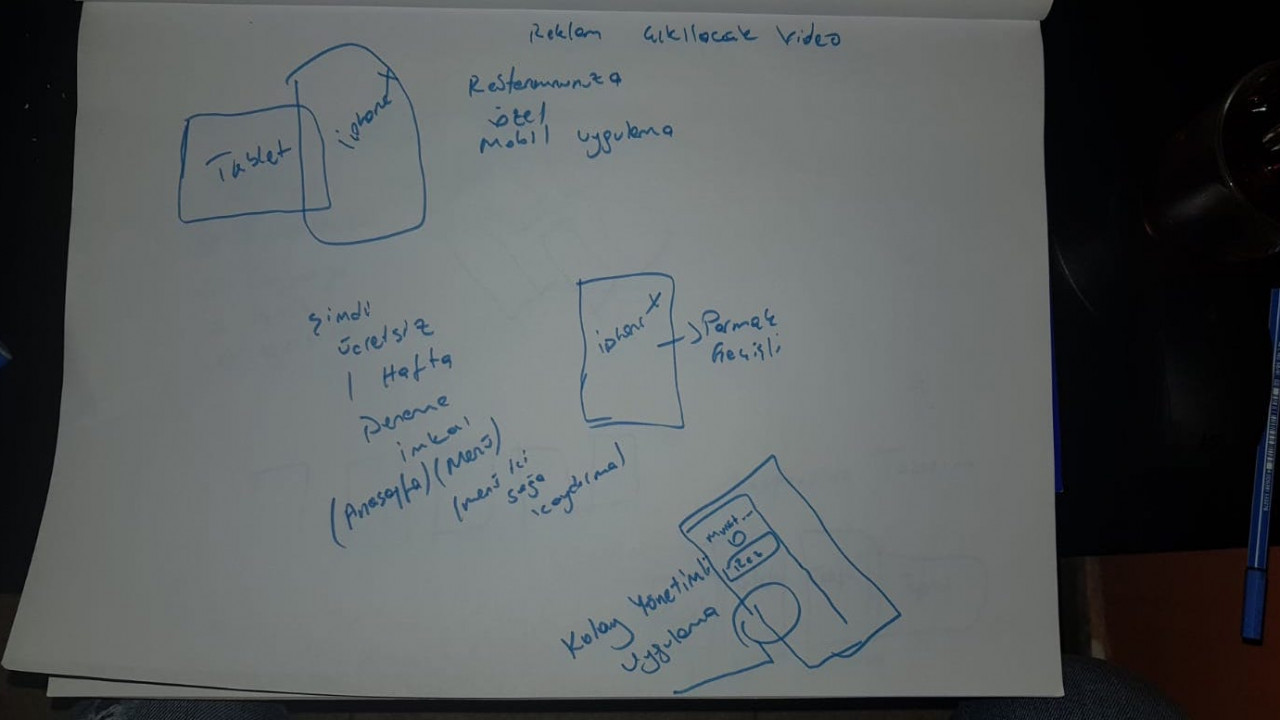 Reklam Çıkılacak Video
Tablet
iphone X
Restoranınıza
özel
Mobil uygulama
Şimdi
ücretsiz
1 Hafta
Deneme
imkanı
(Anasayfa) (Menü)
(menü içi
sağa
kaydırma)
iphone X
Parmak
Geçişli
Rez
Kolay Yönetimli
uygulama